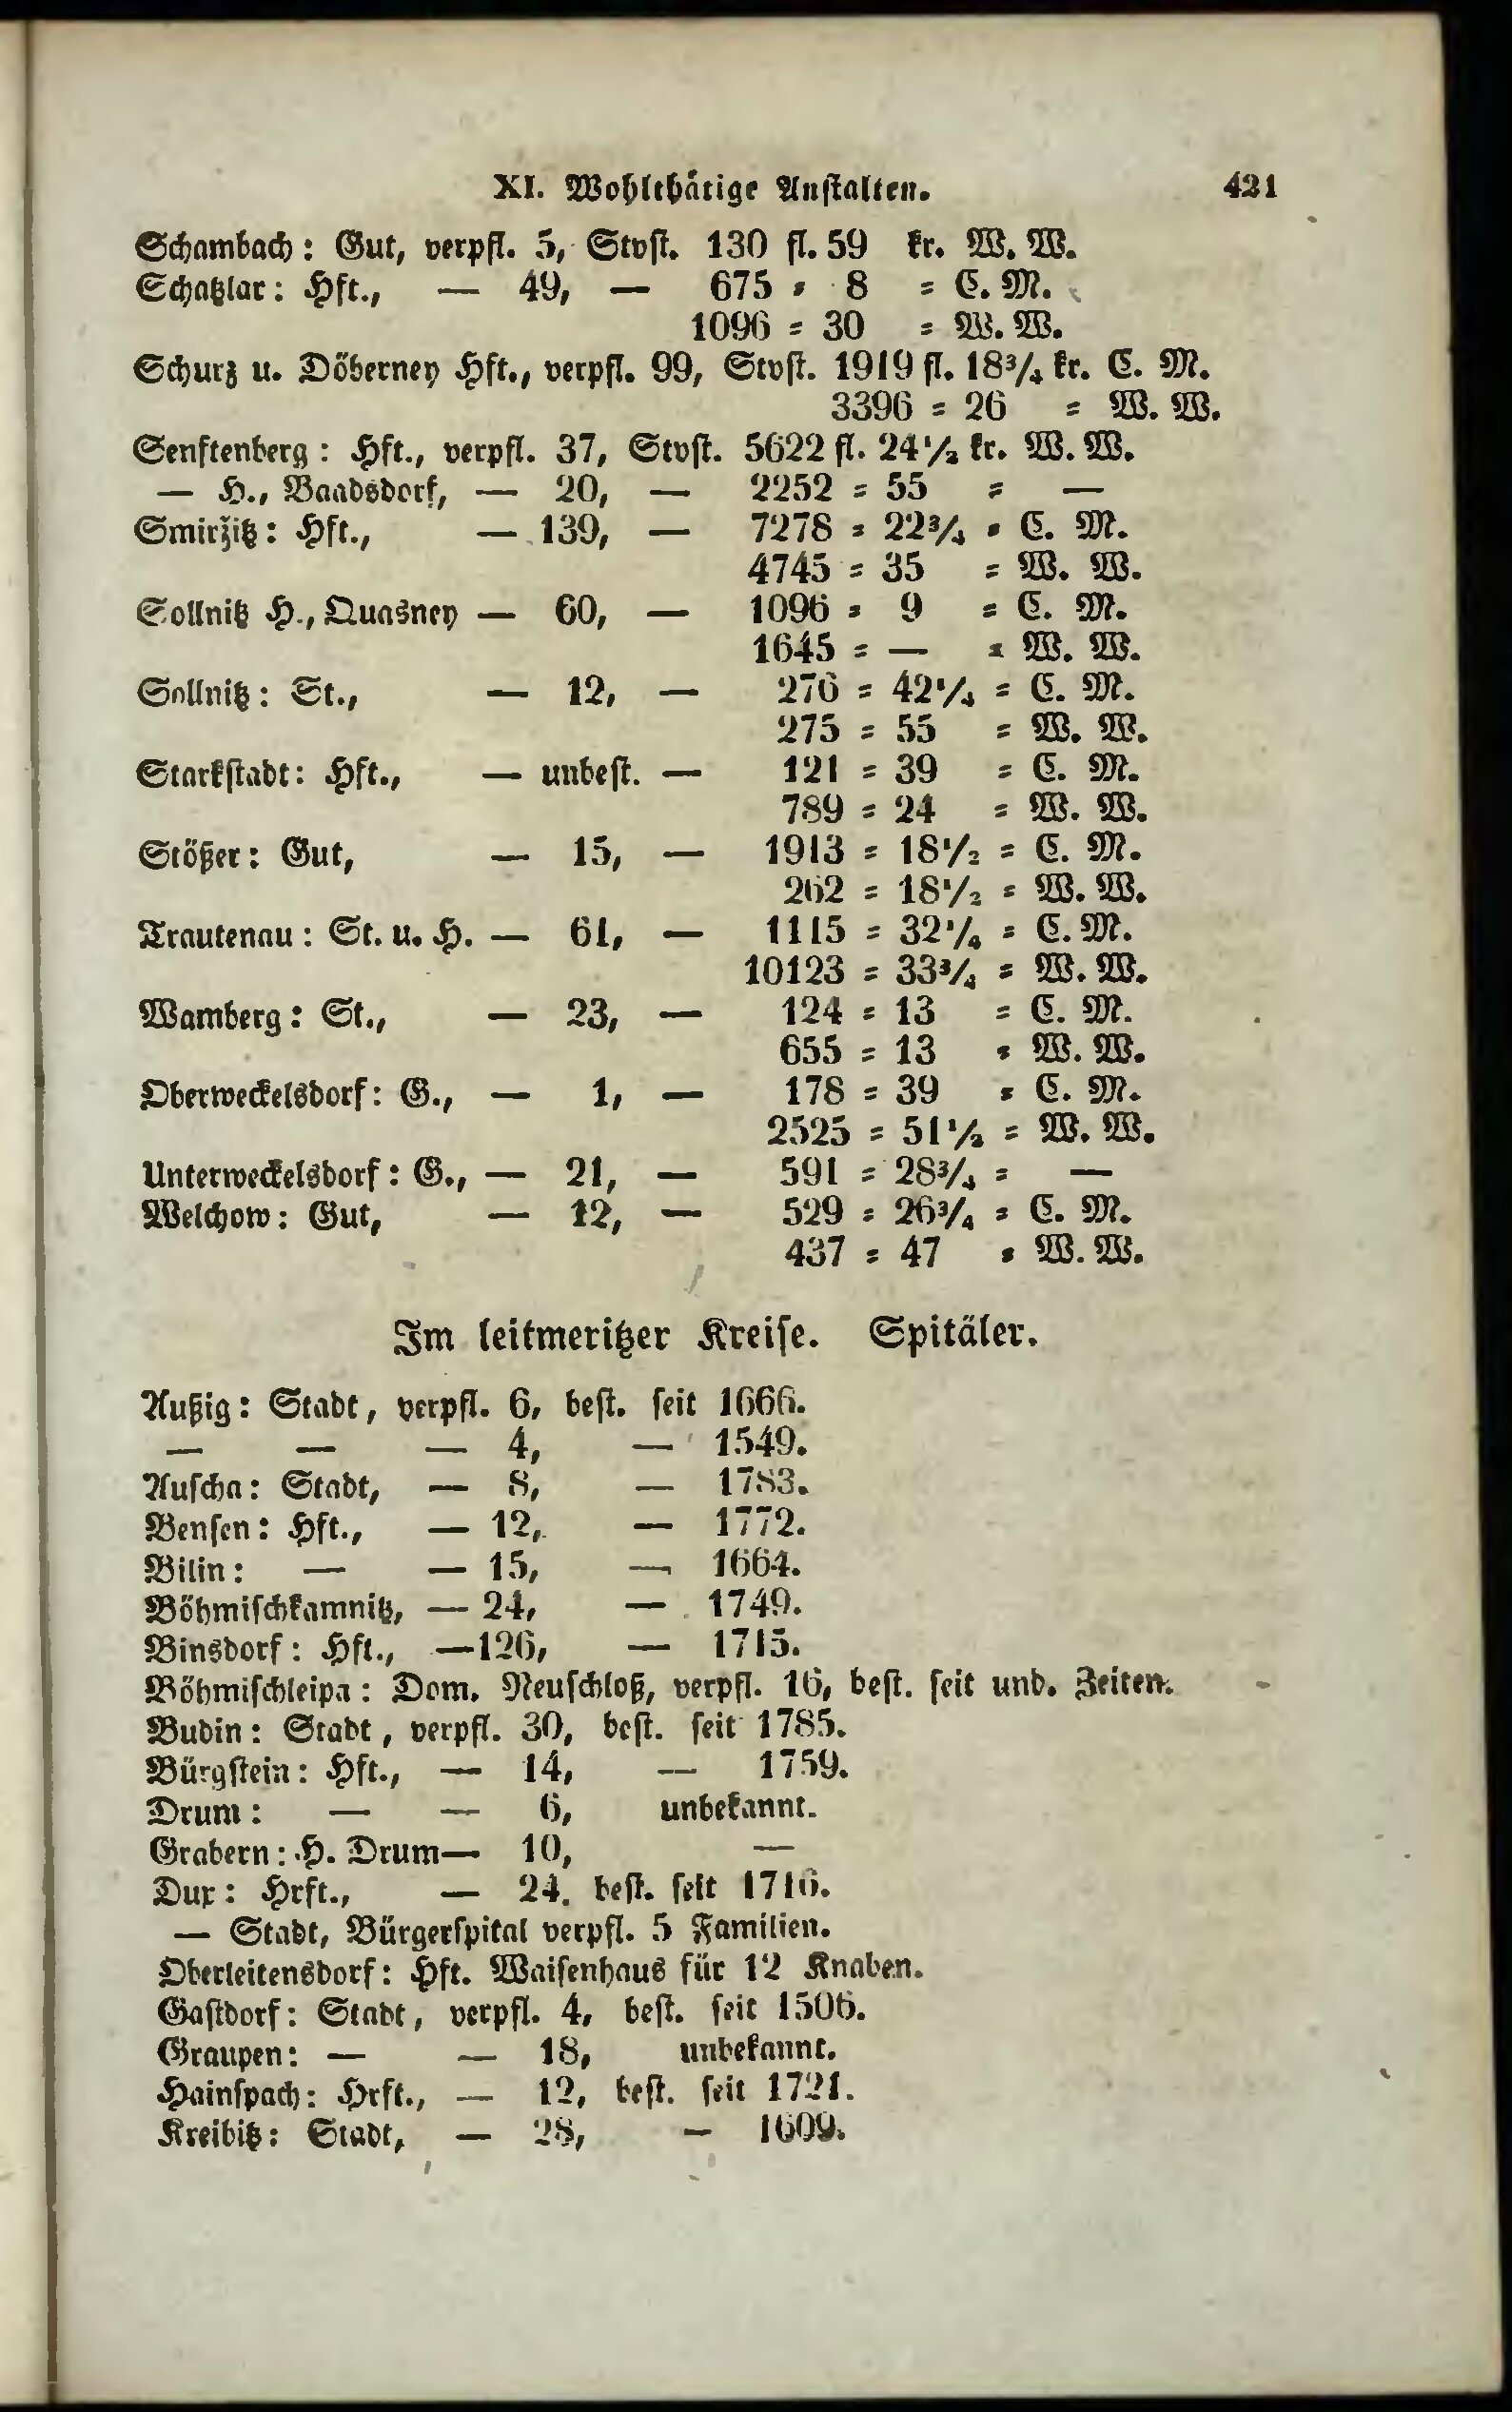 XI. Wohlthätige Anstalten. 421
Schambach: Gut, verpfl. 5, Stvst. 130 fl. 59 kr. W. W.
Schatzlar: Hft., — 49, — 675 = 8 = C. M.
1096 = 30 = W. W.
Schurz u. Döberney Hft., verpfl. 99, Stvst. 1919 fl. 18¾ kr. C. M.
3396 = 26 = W. W.
Senftenberg: Hft., verpfl. 37, Stvst. 5622 fl. 24½ kr. W. W.
— H., Baadsdorf, — 20, — 2252 = 55 = —
Smiržitz: Hft., — 139, — 7278 = 22¾ = C. M.
4745 = 35 = W. W.
Sollnitz H., Quasney — 60, — 1096 = 9 = C. M.
1645 = — = W. W.
Sollnitz: St., — 12, — 276 = 42¼ = C. M.
275 = 55 = W. W.
Starkstadt: Hft., — unbest. — 121 = 39 = C. M.
789 = 24 = W. W.
Stößer: Gut, — 15, — 1913 = 18½ = C. M.
262 = 18½ = W. W.
Trautenau: St. u. H. — 61, — 1115 = 32¼ = C. M.
10123 = 33¾ = W. W.
Wamberg: St., — 23, — 124 = 13 = C. M.
655 = 13 = W. W.
Oberweckelsdorf: G., — 1, — 178 = 39 = C. M.
2525 = 51½ = W. W.
Unterweckelsdorf: G., — 21, — 591 = 28¾ = —
Welchow: Gut, — 12, — 529 = 26¾ = C. M.
437 = 47 = W. W.
Im leitmeritzer Kreise. Spitäler.
Außig: Stadt, verpfl. 6, best. seit 1666.
— — — 4, — 1549.
Auscha: Stadt, — 8, — 1783.
Bensen: Hft., — 12, — 1772.
Bilin: — — 15, — 1664.
Böhmischkamnitz, — 24, — 1749.
Binsdorf: Hft., — 126, — 1715.
Böhmischleipa: Dom. Neuschloß, verpfl. 16, best. seit und. Zeiten.
Budin: Stadt, verpfl. 30, best. seit 1785.
Bürgstein: Hft., — 14, — 1759.
Drum: — — 6, unbekannt.
Grabern: H. Drum — 10, —
Dux: Hrft., — 24. best. seit 1716.
— Stadt, Bürgerspital verpfl. 5 Familien.
Oberleitensdorf: Hft. Waisenhaus für 12 Knaben.
Gastdorf: Stadt, verpfl. 4, best. seit 1506.
Graupen: — — 18, unbekannt.
Hainspach: Hrft., — 12, best. seit 1721.
Kreibitz: Stadt, — 28, — 1609.